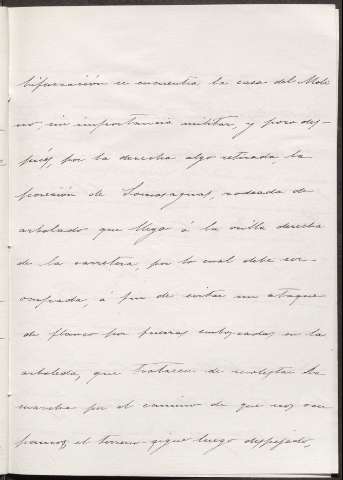 bifurcación se encuentra la casa del Moli
no, sin importancia militar, y poco des-
pués, por la derecha algo retirada, la
posesión de Somosaguas, rodeada de
arbolado que llega á la orilla derecha
de la carretera, por lo cual debe ser
ocupada, á fin de evitar un ataque
de flanco por fuerzas emboscadas en la
arboleda, que tratasen de molestar la
marcha por el camino de que nos ocu
pamos; el terreno sigue luego despejado,